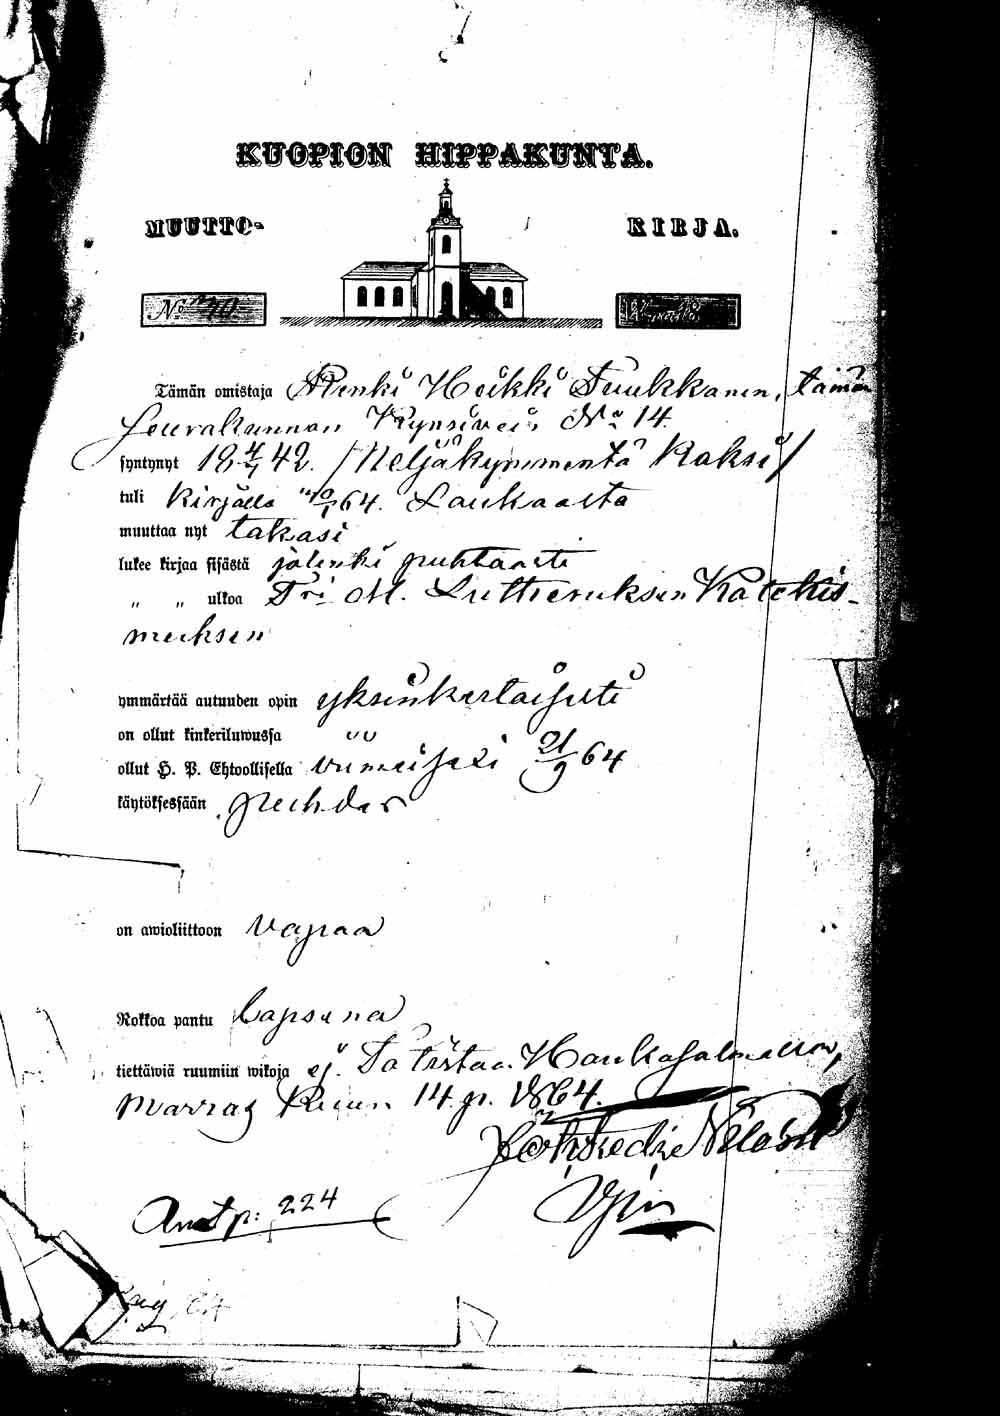 KUOPION HIPPAKUNTA.
MUUTTO-
KIRJA.
No 40.
Tämän omistaja Renki Heikki Tuukkanen, tämän
Seurakunnan Kynsivei, No 14.
syntynyt 18 4/4 42. /Neljäkymmentä Kaksi/
tuli Kirjalla 64. Laukaasta
muuttaa nyt takasi
lukee kirjaa sisästä jotenki puhtaasti
„ „ ulkoa Tri M. Lutheruksen Katekis-
muksen
ymmärtää autuuden opin yksinkertaisesti
on ollut kinkeriluwussa
ollut H. P. Ehtoollisella viimeiseksi 21/9 64
käytöksessään puhdas
on awioliittoon vapaa
Rokkoa pantu lapsena
tiettäwiä ruumiin wikoja ej. Todistaa Hankasalmella,
Marras Kuun 14. p. 1864.
Vpin
Anot p: 224